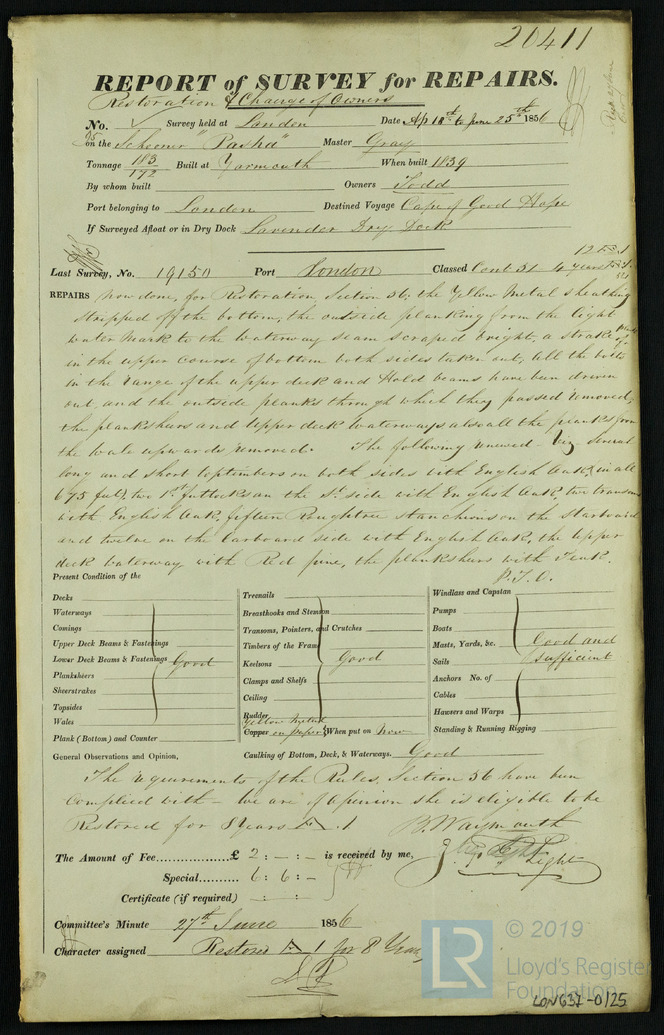 20411
REPORT of SURVEY for REPAIRS.
Restoration & Change of Owners
No. Survey held at London Date Ap 12th to June 25th 1856
on the Schooner "Pasha" Master Gray
Tonnage 183/172 Built at Yarmouth When built 1839
By whom built Owners Todd
Port belonging to London Destined Voyage Cape of Good Hope
If Surveyed Afloat or in Dry Dock Lavender Dry Dock
Last Survey, No. 19150 Port London Classed Cont 51 4 years
REPAIRS now done, for Restoration Section 56, the Yellow Metal sheathing
stripped off the bottom, the outside planking from the light
water mark to the waterway seam scraped bright, a strake
in the upper course of bottom both sides taken out, all the bolts
in the range of the upper deck and Hold beams have been driven
out, and the outside planks through which they passed removed,
the planksheers and upper deck waterways also all the planks from
the wale upwards removed. The following renewed - viz. Several
long and short toptimbers on both sides with English Oak, in all
675 feet, two 1st futtocks on the St. side with English Oak, two transoms
with English Oak, fifteen Roughtree stanchions on the starboard
and twelve on the larboard side with English Oak, the upper
deck waterway with Red pine, the planksheers with Teak.
P.T.O.
Present Condition of the
Decks
Waterways
Comings
Upper Deck Beams & Fastenings
Lower Deck Beams & Fastenings Good
Planksheers
Sheerstrakes
Topsides
Wales
Plank (Bottom) and Counter
Treenails
Breasthooks and Stemson
Transoms, Pointers, and Crutches
Timbers of the Frame
Keelsons Good
Clamps and Shelfs
Ceiling
Rudder
Yellow Metal
Copper on paper When put on Now
Caulking of Bottom, Deck, & Waterways. Good
Windlass and Capstan
Pumps
Boats
Masts, Yards, &c. Good and
Sails sufficient
Anchors No. of
Cables
Hawsers and Warps
Standing & Running Rigging
General Observations and Opinion,
The requirements of the Rules, Section 56 have been
complied with - we are of opinion she is eligible to be
Restored for 8 Years A 1 B. Waymouth
The Amount of Fee............... £ 2 : - : - is received by me,
Special.......... 6 : 6 : -
Certificate (if required)
Committee's Minute 27th June 1856
Character assigned Restored A 1 for 8 Years
© 2019
LR
Lloyd's Register
Foundation
LON637-0125